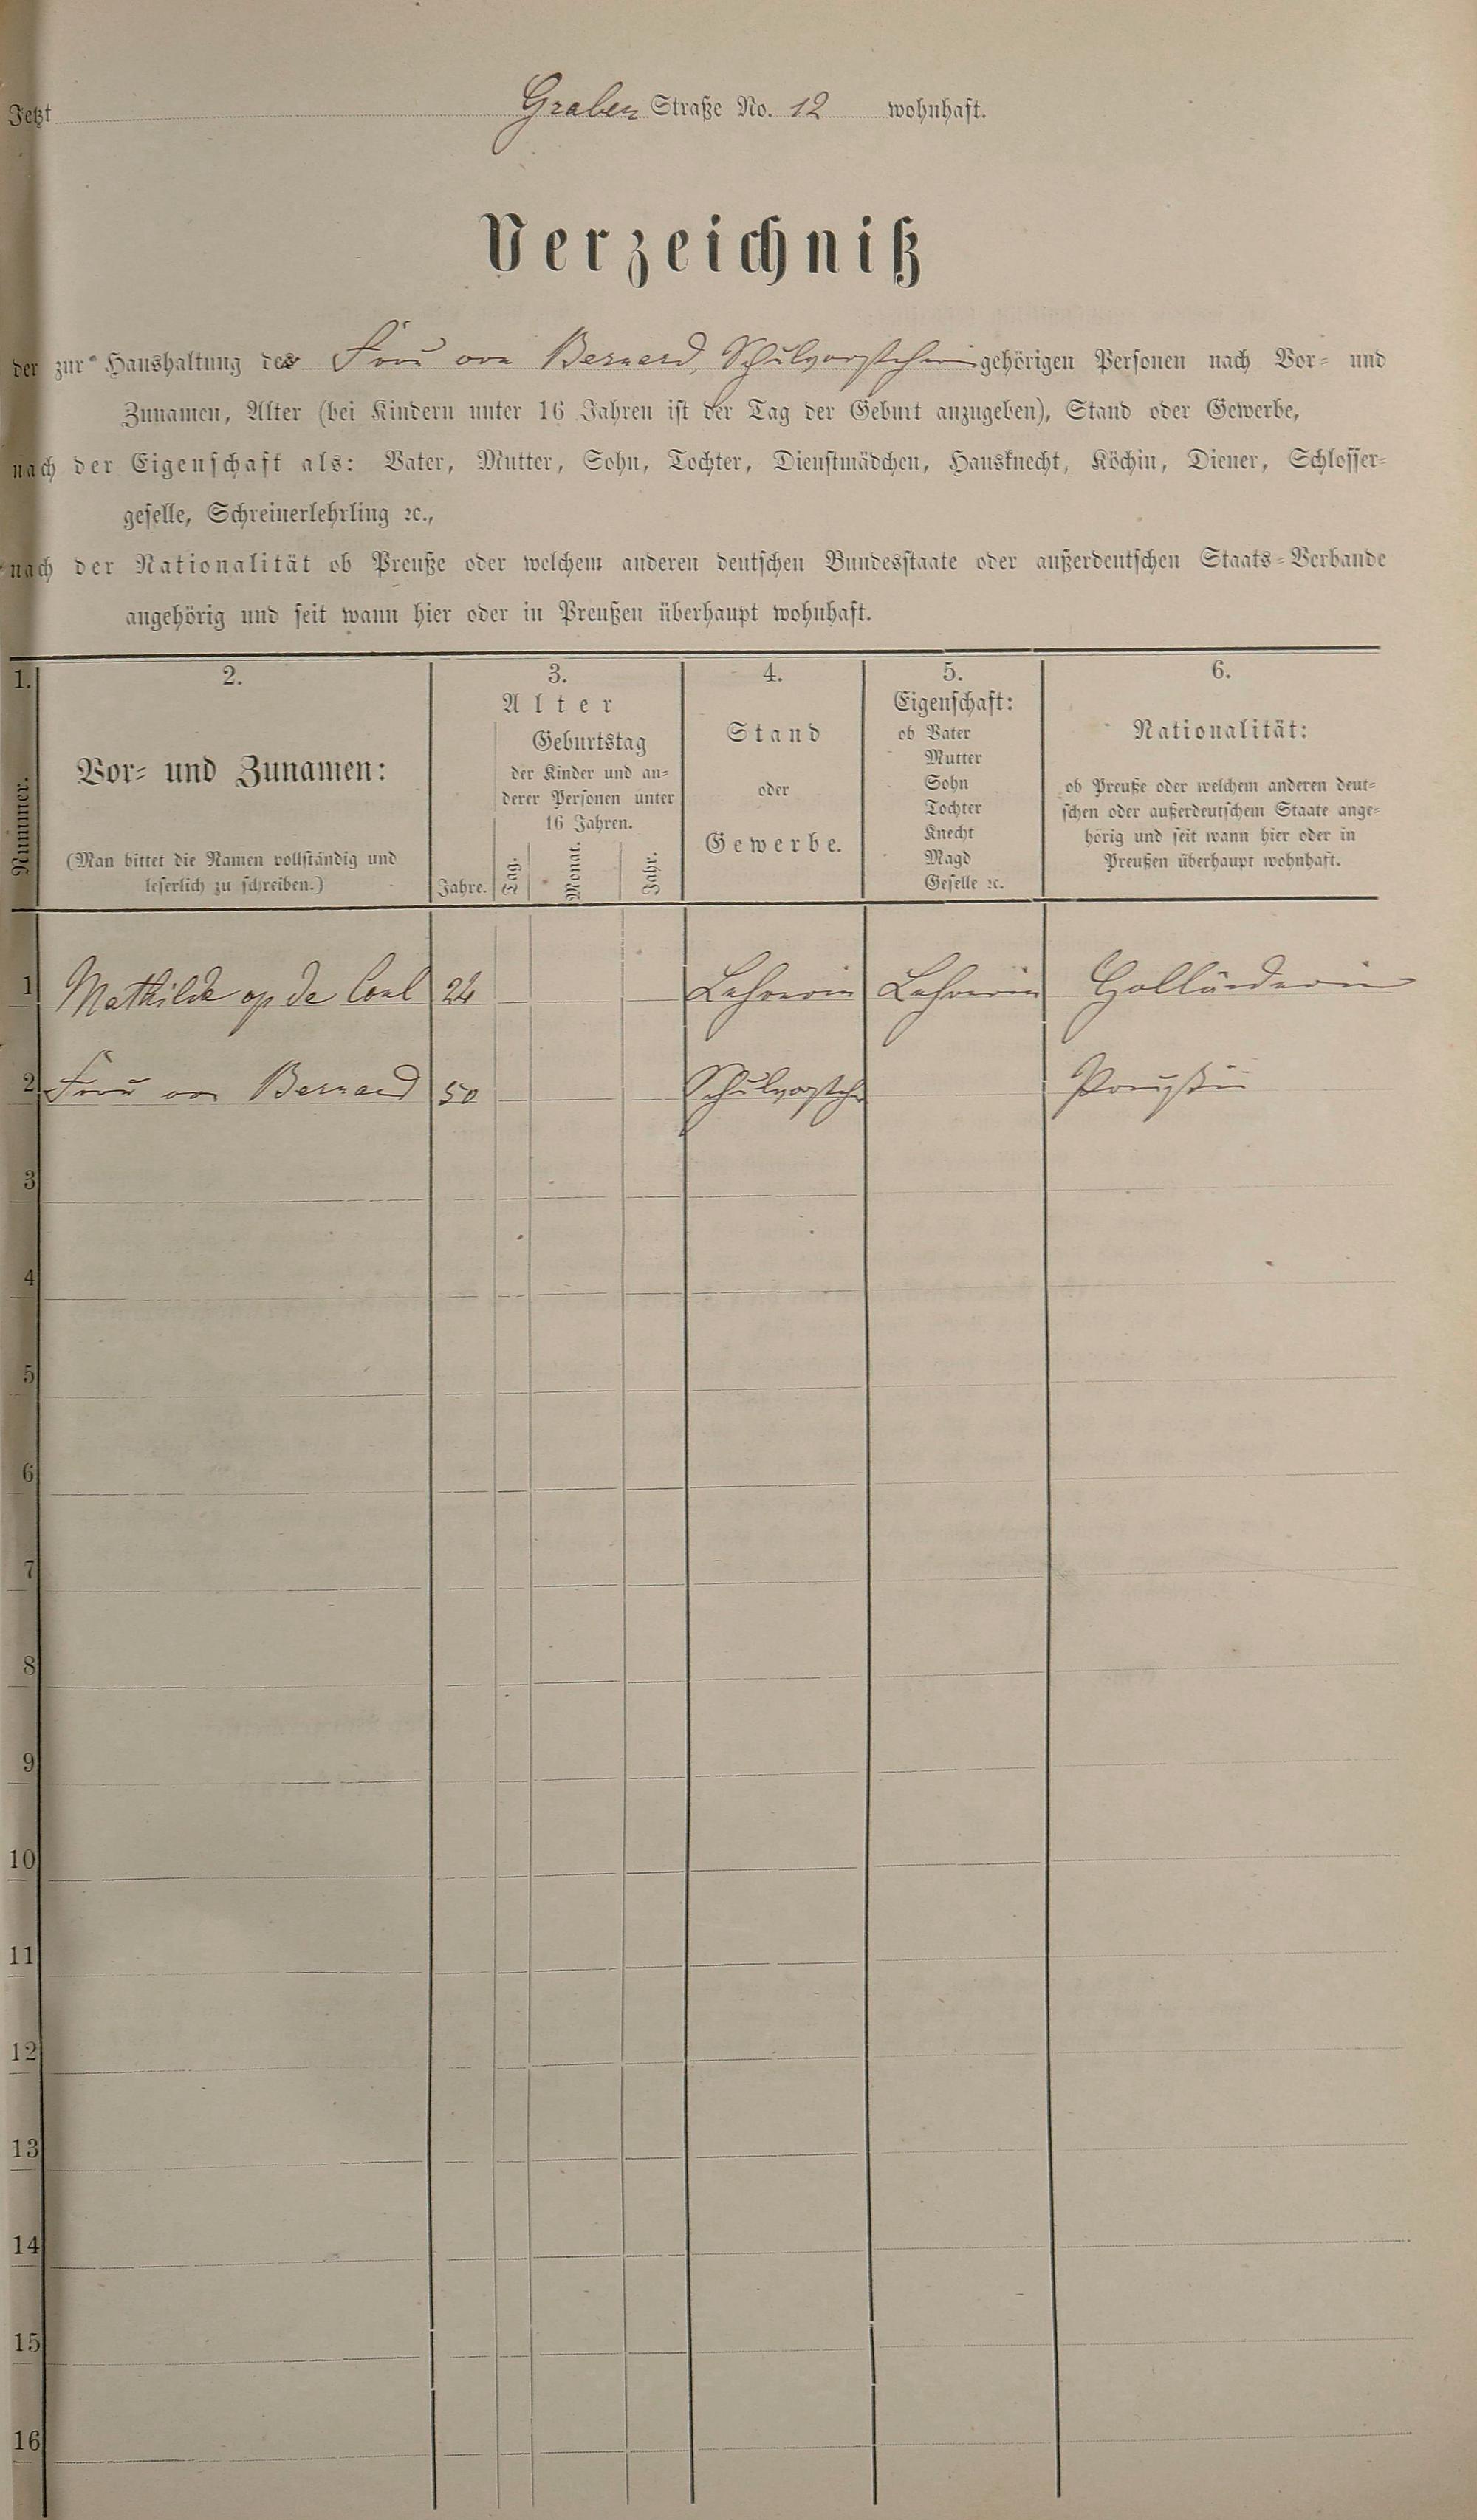 Jetzt Graben Straße No. 12 wohnhaft.
Verzeichniß
der zur Haushaltung der Frau von Bernard, Schulvorsteherin gehörigen Personen nach Vor- und
Zunamen, Alter (bei Kindern unter 16 Jahren ist der Tag der Geburt anzugeben), Stand oder Gewerbe,
nach der Eigenschaft als: Vater, Mutter, Sohn, Tochter, Dienstmädchen, Hausknecht, Köchin, Diener, Schlosser-
geselle, Schreinerlehrling ꝛc.,
nach der Nationalität ob Preuße oder welchem anderen deutschen Bundesstaate oder außerdeutschen Staats-Verbande
angehörig und seit wann hier oder in Preußen überhaupt wohnhaft.
1. 2. 3. 4. 5. 6.
Nummer.
Vor- und Zunamen:
(Man bittet die Namen vollständig und
leserlich zu schreiben.)
Alter
Jahre.
Geburtstag
der Kinder und an-
derer Personen unter
16 Jahren.
Tag. Monat. Jahr.
Stand
oder
Gewerbe.
Eigenschaft:
ob Vater
Mutter
Sohn
Tochter
Knecht
Magd
Geselle ꝛc.
Nationalität:
ob Preuße oder welchem anderen deut-
schen oder außerdeutschem Staate ange-
hörig und seit wann hier oder in
Preußen überhaupt wohnhaft.
1 Mathilde op de Coul 24 Lehrerin Lehrerin Holländerin
2 Frau von Bernard 50 Schulvorsteh Preußin
3
4
5
6
7
8
9
10
11
12
13
14
15
16